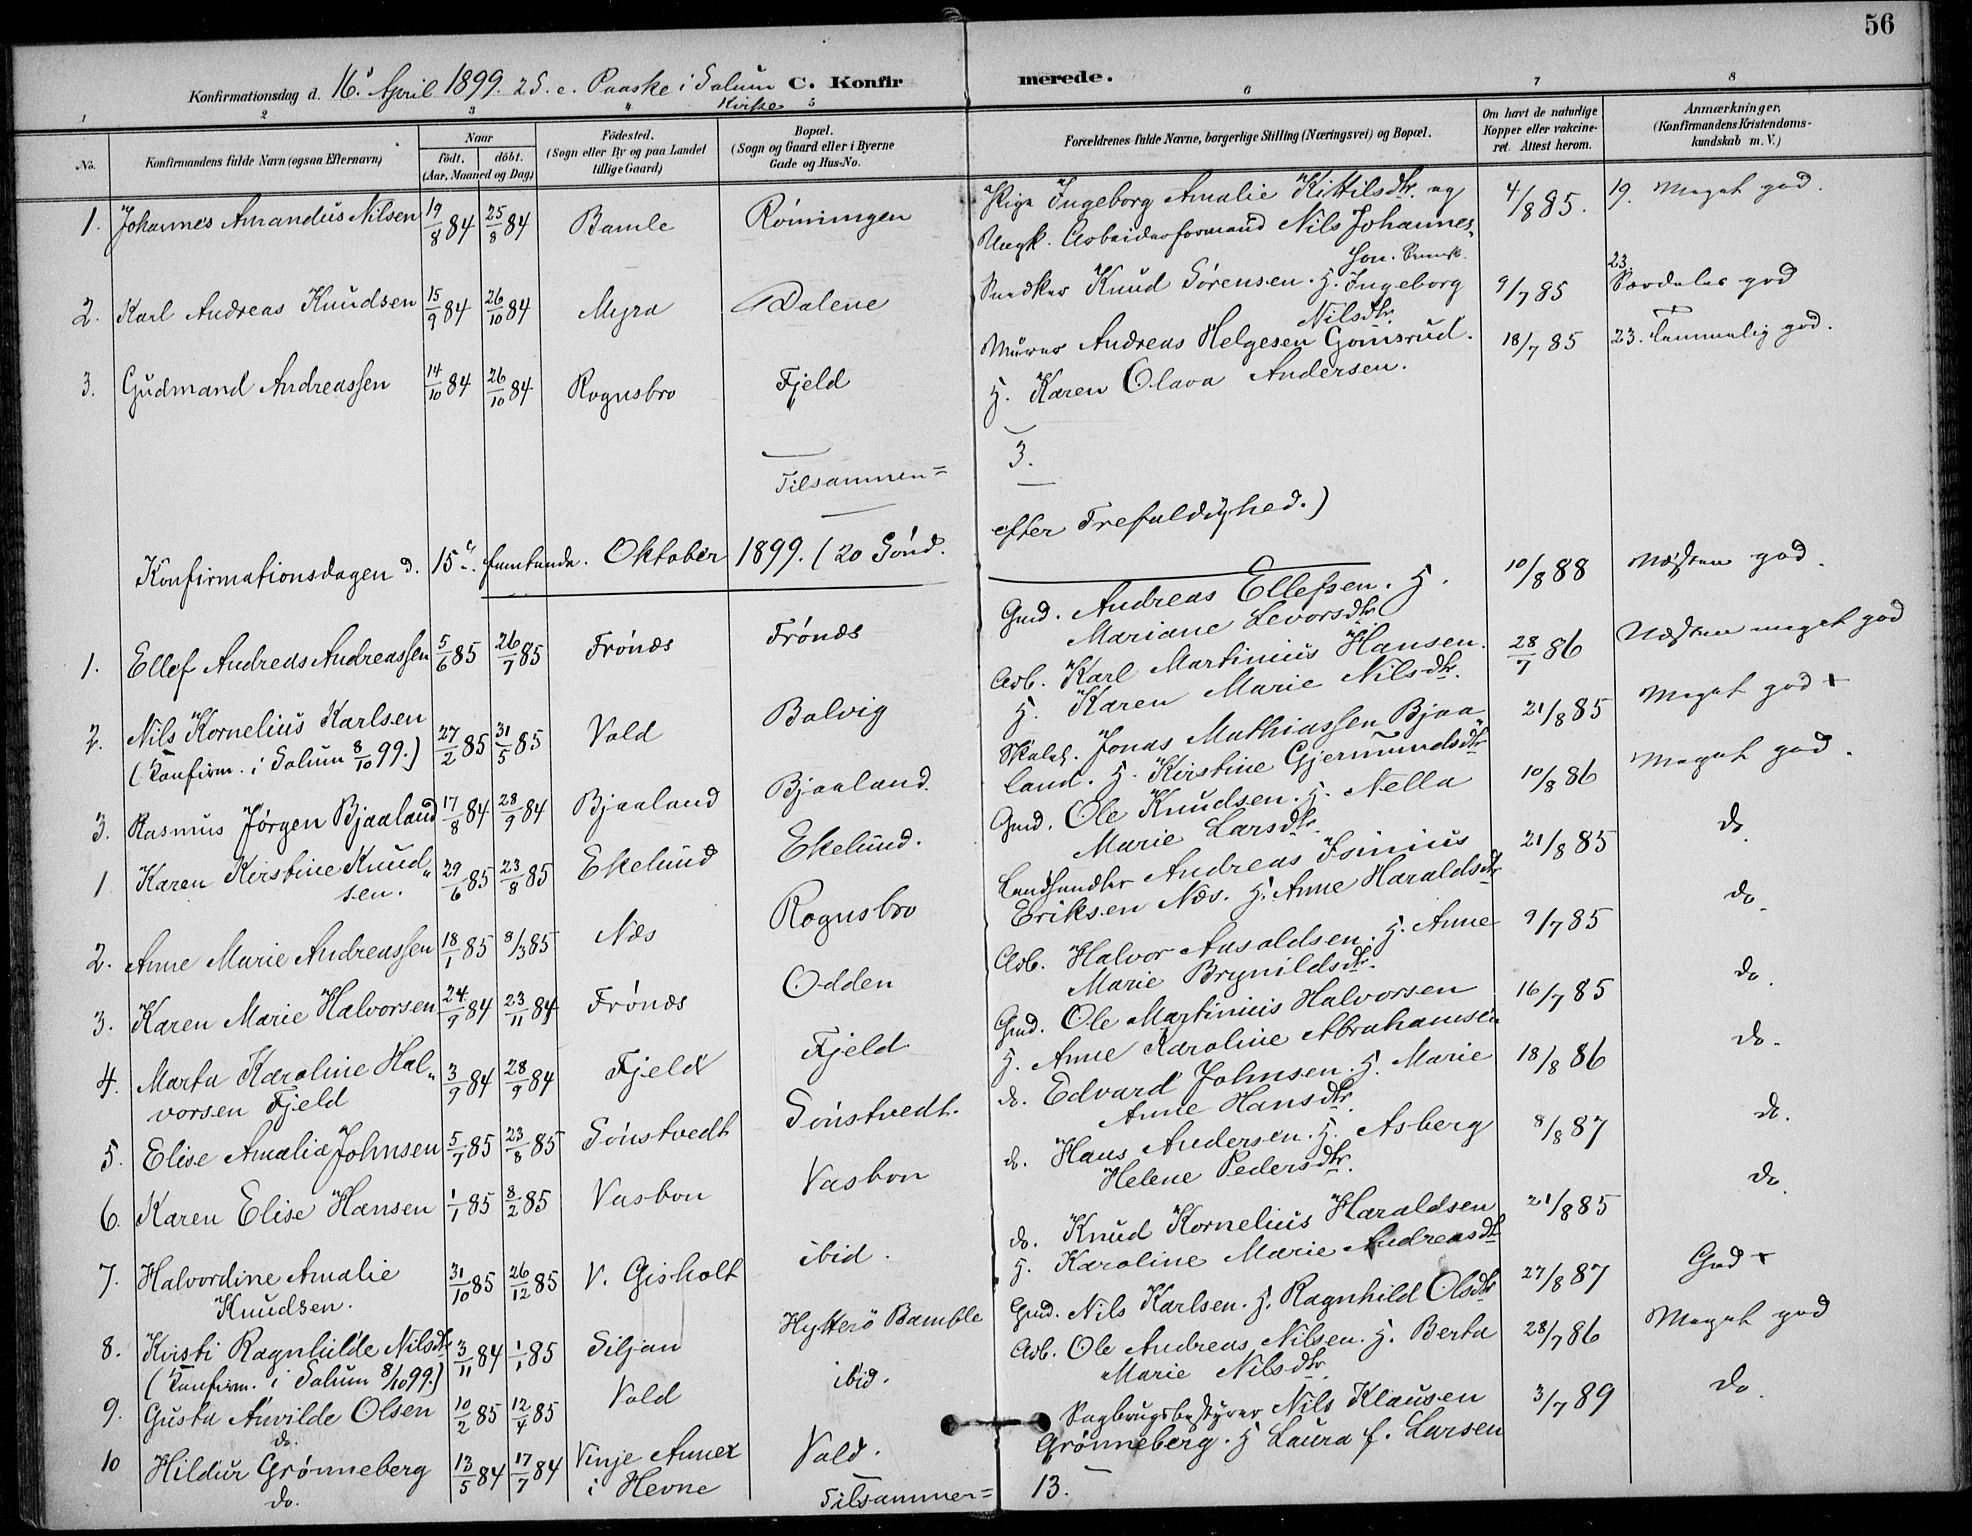 56
Konfirmationsdag d. 16. April 1899. 2 S. e. Paaske i Solum Kirke C. Konfirmerede.
1 2 3 4 5 6 7 8
No. Konfirmandens fulde Navn (ogsaa Efternavn) Naar født. døbt. (Aar, Maaned og Dag) Fødested. (Sogn eller By og paa Landet tillige Gaard) Bopæl. (Sogn og Gaard eller i Byerne Gade og Hus-No. Forældrenes fulde Navne, borgerlige Stilling (Næringsvei) og Bopæl. Om havt de naturlige Kopper eller vakcineret. Attest herom. Anmærkninger. (Konfirmandens Kristendomskundskab m. V.)
1. Johannes Amandus Nilsen 19/8 84 25/8 84 Bamle Röningen Pige Ingeborg Amalie Kittilsdtr. og 4/8 85. 19. Meget god.
Ungk. Arbeiderformand Nils Johannes-
sen.
2. Karl Andreas Knudsen 15/9 84 26/10 84 Myra Dalene Snedker Knud Sørensen. H. Ingeborg 9/7 85 23 Særdeles god
Nilsdtr.
3. Gudmand Andreassen 14/10 84 26/10 84 Rognsbro Fjeld Murer Andreas Helgesen Gomsrud. 18/7 85 23. Temmelig god.
H. Karen Olava Andersen.
Tilsammen = 3.
Konfirmationsdagen d. 15de. femtende. Oktober 1899. (20 Sönd. efter Trefoldighed.)
1. Ellef Andreas Andreassen 5/6 85 26/7 85 Frönæs Frönæs Gmd. Andreas Ellefsen. H. 10/8 88 Næsten god.
Mariane Levorsdtr.
2. Nils Kornelius Karlsen 27/2 85 31/5 85 Vold Bolvig Arb. Karl Martinius Hansen. 28/7 86 Næsten meget god
(Konfirm. i Solum 8/10 99.) H. Karen Marie Nilsdtr.
3. Rasmus Jørgen Bjaaland 17/8 84 28/9 84 Bjaaland Bjaaland. Jonas Mathiassen Bjaa- 21/8 85 Meget god +
land. H. Kirstine Gjermundsdtr
1 Karen Kirstine Knud- 29/6 85 23/8 85 Ekelund Ekelund. Gmd. Ole Knudsen. H. Nella 10/8 86 Meget god.
sen. Marie Larsdtr.
2. Anne Marie Andreassen 18/1 85 8/3 85 Næs Rognsbro Landhandler Andreas Isinius 21/8 85 do.
Eriksen Næs. H. Anne Haraldsdtr
3. Karen Marie Halvorsen 24/9 84 23/11 84 Frönæs Odden Arb. Halvor Ansaldsen. H. Anne 9/7 85 do.
Marie Brynildsdtr.
4. Marta Karoline Hal- 3/9 84 28/9 84 Fjeld Fjeld Gmd. Ole Martinius Halvorsen 16/7 85 do.
vorsen Fjeld H. Anne Karoline Abrahamsen
5. Elise Amalia Johnsen 5/7 85 23/8 85 Sönstvedt Sönstvedt. do. Edvard Johnsen. H. Marie 18/8 86 do.
Anne Hansdtr.
6. Karen Elise Hansen 1/1 85 8/2 85 Vasbon Vasbon do. Hans Andersen. H. Asberg 8/8 87 do.
Helene Pedersdtr.
7. Halvordine Amalie 31/10 85 26/12 85 V. Gisholt ibid. do. Knud Kornelius Haraldsen 21/8 85 do.
Knudsen. H. Karoline Marie Andreasdtr
8. Kristi Ragnhilde Nilsdtr 3/11 84 1/1 85 Siljan Hytterö Bamble Gmd. Nils Karlsen. H. Ragnhild Olsdtr 27/8 87 God +
(Konfirm. i Solum 8/10 99.)
9. Gusta Anvilde Olsen 10/2 85 12/4 85 Vold ibid. Arb. Ole Andreas Nilsen. H. Berta 28/7 86 Meget god
do. Marie Nilsdtr.
10 Hildur Grønneberg 13/5 84 17/7 84 Vinje Annex Vold. Sagbrugsbestyrer Nils Klausen 3/7 89 do.
do. i Hevne Grønneberg. H Laura f. Larsen
Tilsammen = 13.